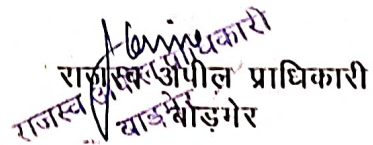 राजस्व अपील प्राधिकारी
बाड़मेर
राजस्व अपील प्राधिकारी
बाडमेर